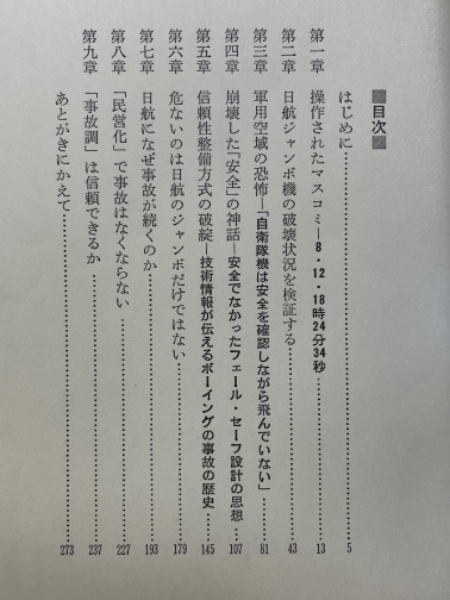 ■目次■
はじめに……………5
第一章 操作されたマスコミ―8・12・18時24分34秒……………13
第二章 日航ジャンボ機の破壊状況を検証する……………43
第三章 軍用空域の恐怖―「自衛隊機は安全を確認しながら飛んでいない」……………81
第四章 崩壊した「安全」の神話―安全でなかったフェール・セーフ設計の思想……………107
第五章 信頼性整備方式の破綻―技術情報が伝えるボーイングの事故の歴史……………145
第六章 危ないのは日航のジャンボだけではない……………179
第七章 日航になぜ事故が続くのか……………193
第八章 「民営化」で事故はなくならない……………227
第九章 「事故調」は信頼できるか……………237
あとがきにかえて……………273